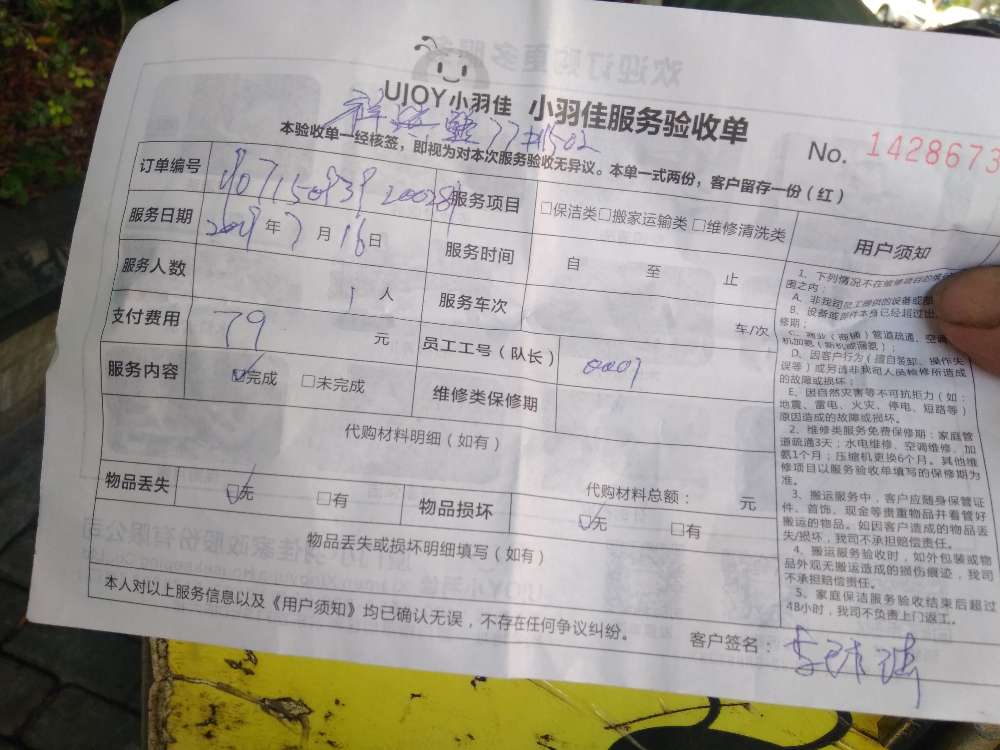 UJOY 小羽佳 小羽佳服务验收单
77#1502
No. 1428673
本验收单一经核签，即视为对本次服务验收无异议。本单一式两份，客户留存一份（红）
订单编号
服务项目 □保洁类□搬家运输类 □维修清洗类
服务日期 2019年7月16日
服务时间 自 至 止
服务人数 1 人
服务车次 车/次
支付费用 79 元
员工工号（队长） 0007
服务内容 ☑完成 □未完成
维修类保修期
代购材料明细（如有）
代购材料总额： 元
物品丢失 ☑无 □有
物品损坏 ☑无 □有
物品丢失或损坏明细填写（如有）
本人对以上服务信息以及《用户须知》均已确认无误，不存在任何争议纠纷。
客户签名：
用户须知
1、下列情况不在维修项目的
围之内：
A、非我司员工提供的设备或
B、设备或部件本身已经超过
修期；
管道疏通、空调
D、因客户行为（擅自装卸、操作失
误等）或另请非我司人员检修所造成
的故障或损坏；
E、因自然灾害等不可抗拒力（如：
地震、雷电、火灾、停电、短路等）
原因造成的故障或损坏。
2、维修类服务免费保修期：家庭管
道疏通3天；水电维修、空调维修、加
氨1个月；压缩机更换6个月。其他维
修项目以服务验收单填写的保修期为
准。
3、搬运服务中，客户应随身保管证
件、首饰、现金等贵重物品并看管好
搬运的物品。如因客户造成的物品丢
失/损坏，我司不承担赔偿责任。
4、搬运服务验收时，如外包装或物
品外观无搬运造成的损伤痕迹，我司
不承担赔偿责任。
5、家庭保洁服务验收结束后超过
48小时，我司不负责上门返工。